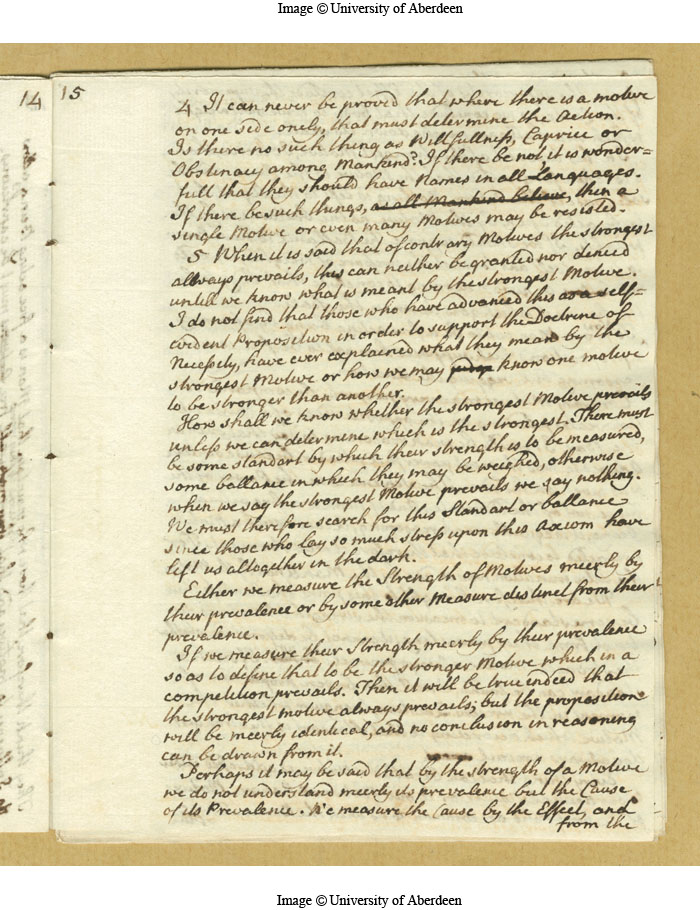 Image © University of Aberdeen
14
15
4 It can never be proved that where there is a motive
on one side onely, that must determine the Action.
Is there no such thing as Willfullness, Caprice or
Obstinacy among Mankind? If there be not it is wonder=
full that they should have Names in all Languages.
If there be such things, as all Mankind believe, then a
single Motive or even many Motives may be resisted.
5 When it is said that of contrary Motives the strongest
allways prevails, this can neither be granted nor denied
untill we know what is meant by the strongest Motive.
I do not find that those who have advanced this as a self=
evident Proposition in order to support the Doctrine of
Necessity, have ever explained what they mean by the
strongest Motive or how we may know one motive
to be stronger than another.
How shall we know whether the strongest Motive prevails
unless we can determine which is the strongest. There must
be some standart by which their strength is to be measured,
some ballance in which they may be weighed, otherwise
when we say the strongest Motive prevails we say nothing.
We must therefore search for this Standart or ballance
since those who lay so much stress upon this Axiom have
left us altogether in the dark.
Either we measure the Strength of Motives meerly by
their prevalence or by some other Measure distinct from their
prevalence.
If we measure their Strength meerly by their prevalence
so as to define that to be the stronger Motive which in a
competition prevails. Then it will be true indeed that
the strongest motive always prevails; but the proposition
will be meerly identical, and no conclusion in reasoning
can be drawn from it.
Perhaps it may be said that by the strength of a Motive
we do not understand meerly its prevalence but the Cause
of its Prevalence. We measure the Cause by the Effect, and
from the
Image © University of Aberdeen